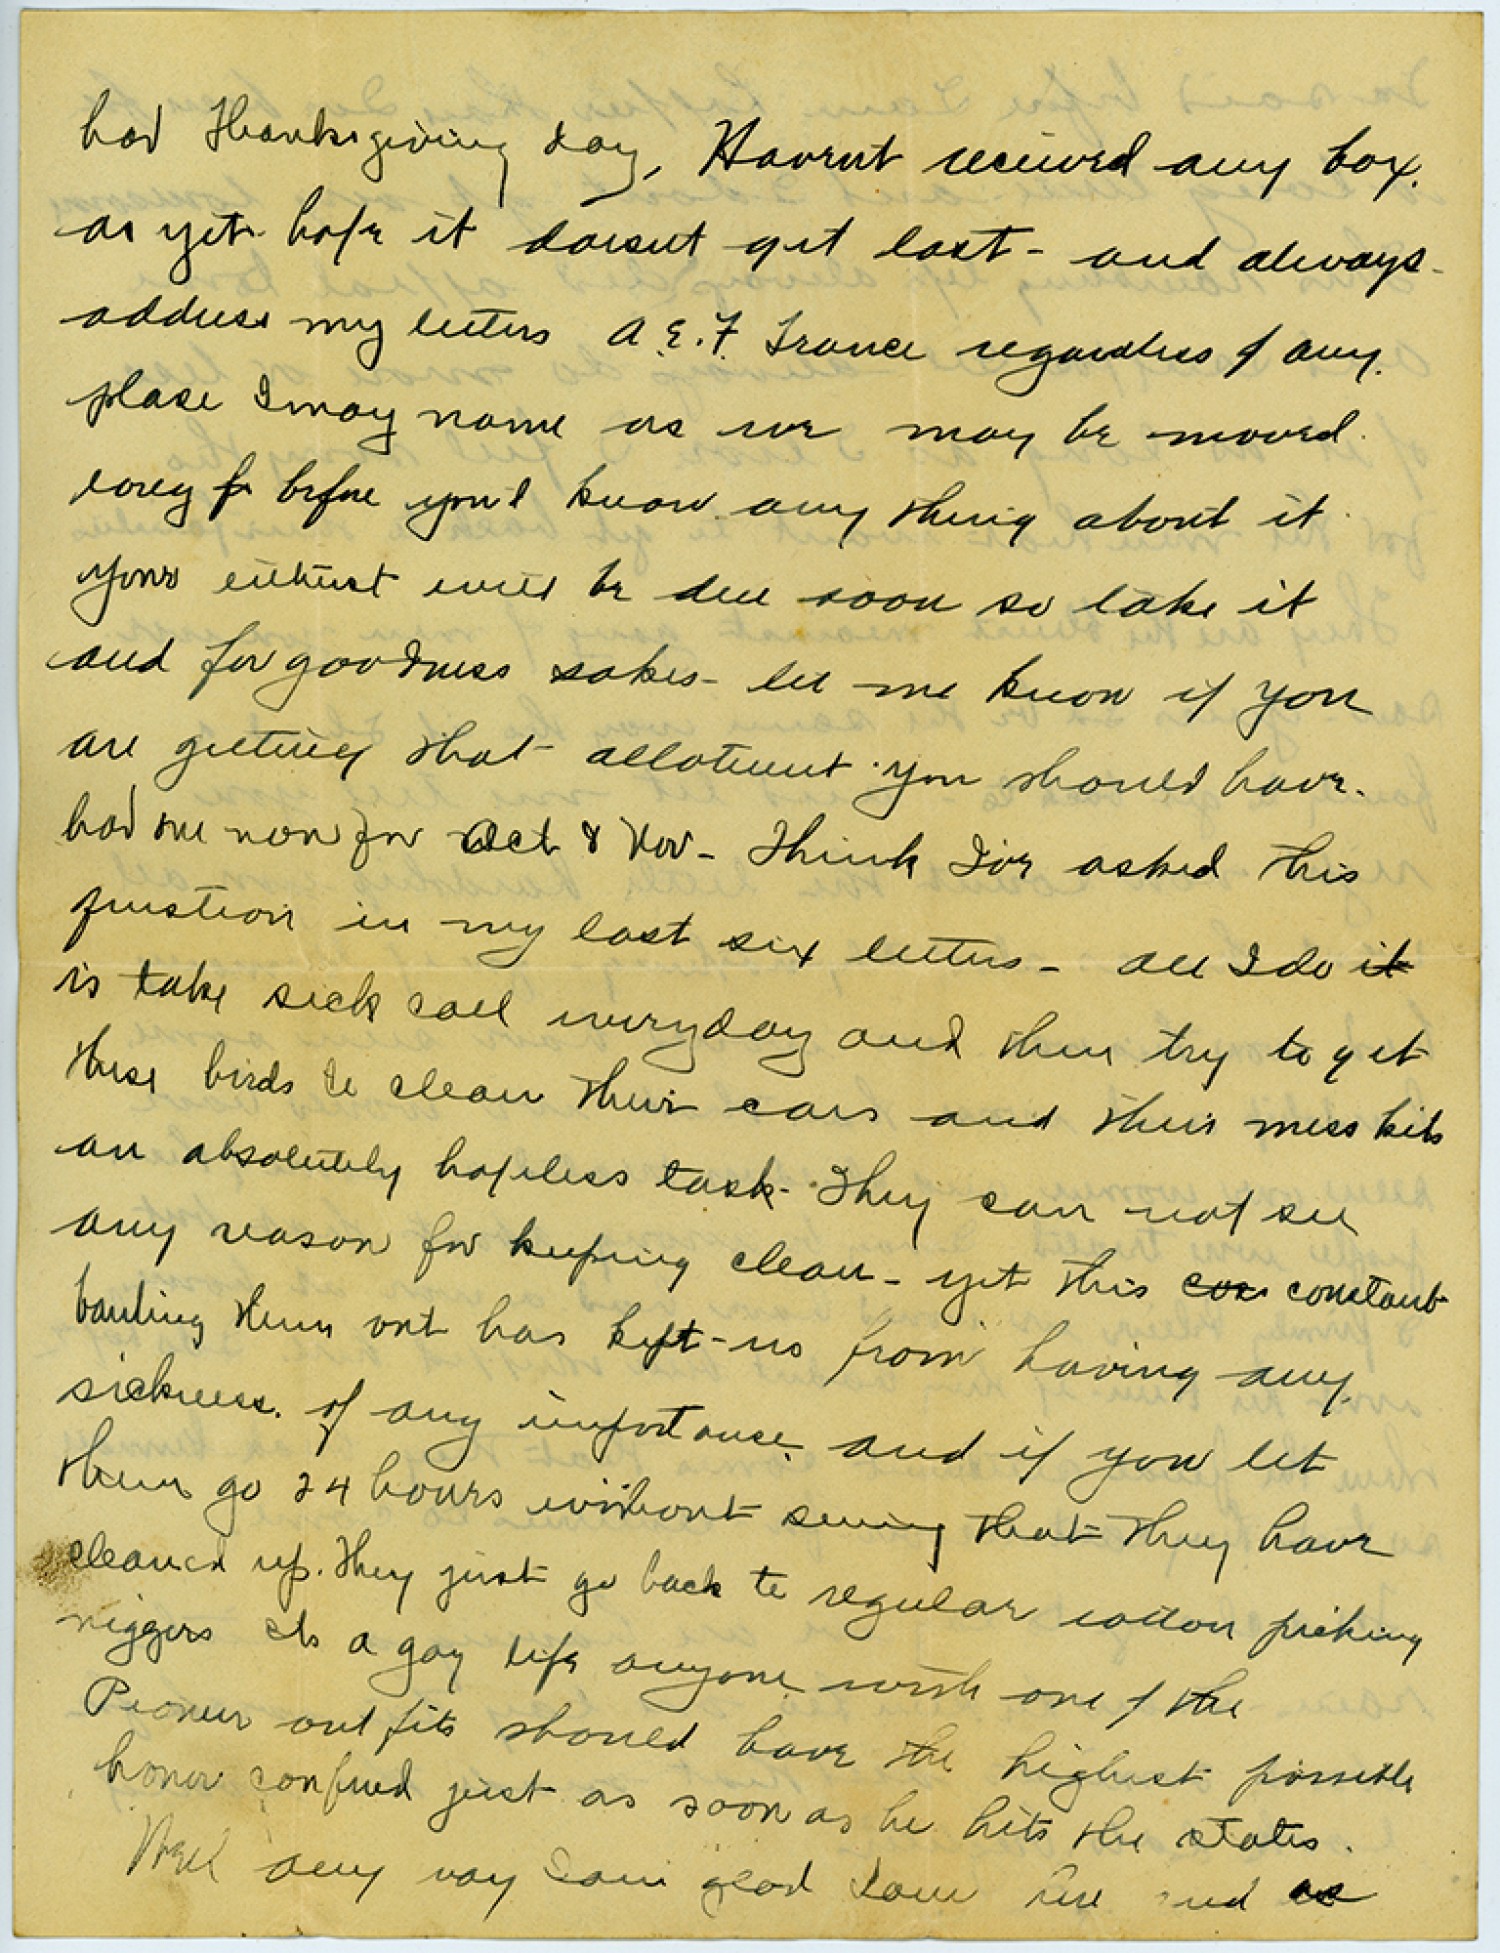 had Thanksgiving day, Havent recieved any box.
as yet. hope it doesent get lost - and always
address my letters A.E.F. France regardless of any.
plase I may name as we may be moved.
long before you'l know any thing about it.
your interest will be due soon so take it
and for goodness sakes - let me know if you
are getting that allotment. you should have.
had one now for Oct & Nov - Think I've asked this
question in my last six letters - all I do it
is take sick call everyday and then try to get
these birds to clean their ears and their mess kits
an absolutely hopeless task. They can not see
any reason for keeping clean - yet this con constant
bawling them out has kept us from having any.
sickness. of any importanse and if you let
them go 24 hours without seeing that they have
cleaned up. they just go back to regular cotton picking
niggers its a gay life anyone with one of the
Pioneer outfits should have the highest possible
honor confired just as soon as he hits the states.
Well any way I am glad I am here and as